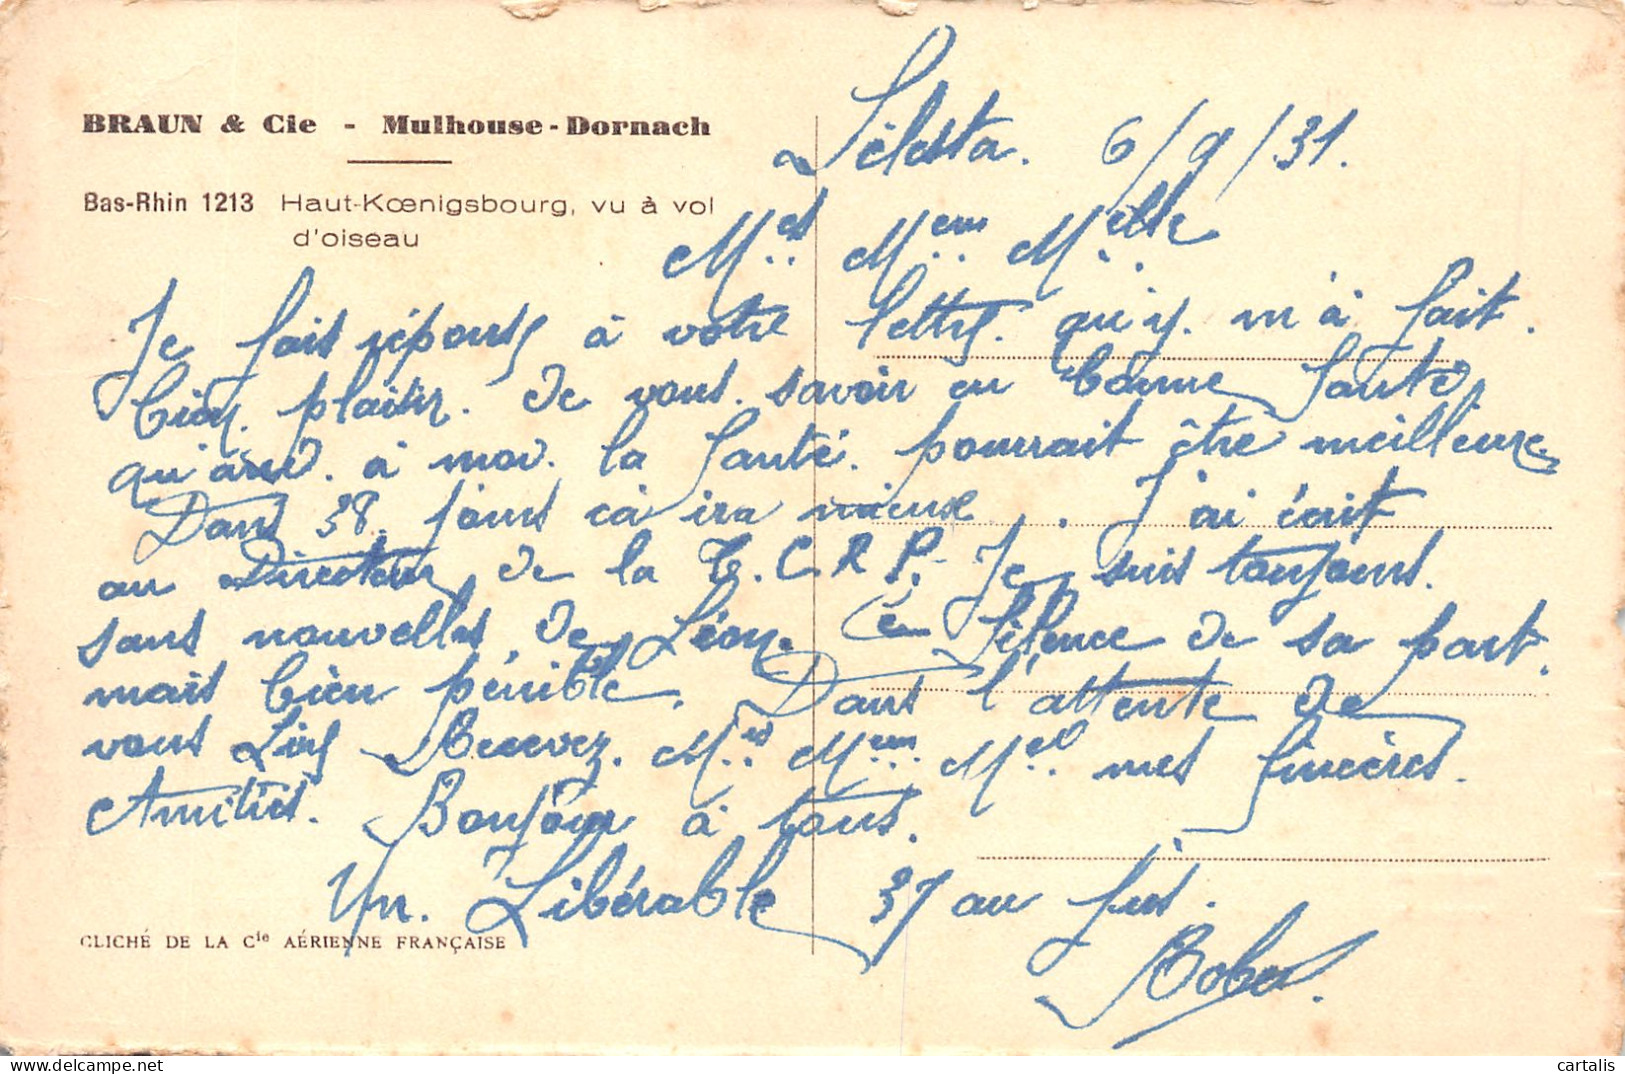 BRAUN & Cie - Mulhouse-Dornach
Bas-Rhin 1213 Haut-Kœnigsbourg, vu à vol
d'oiseau
Sélesta. 6/9/31.
Mes Mem Melle
Je fais réponse à votre lettre. qu'y. m'à fait.
bien. plaisir. de vous. savoir en bonne Santé
qu'and. à moi. la Santé. pourrait être meilleure.
Dans 38. jours cà ira mieux. J'ai écrit
au Directeur de la T.C.R.P. Je suis toujours.
sans nouvelles de Léon. Ce Silence de sa part.
mais bien pénible. Dans l'attente de
vous Recevez. Mes Mem Mel mes Sincères.
Amitiés. Bonjour à tous.
Un. Libérable 37 au jus.
CLICHÉ DE LA Cie AÉRIENNE FRANÇAISE
cartalis